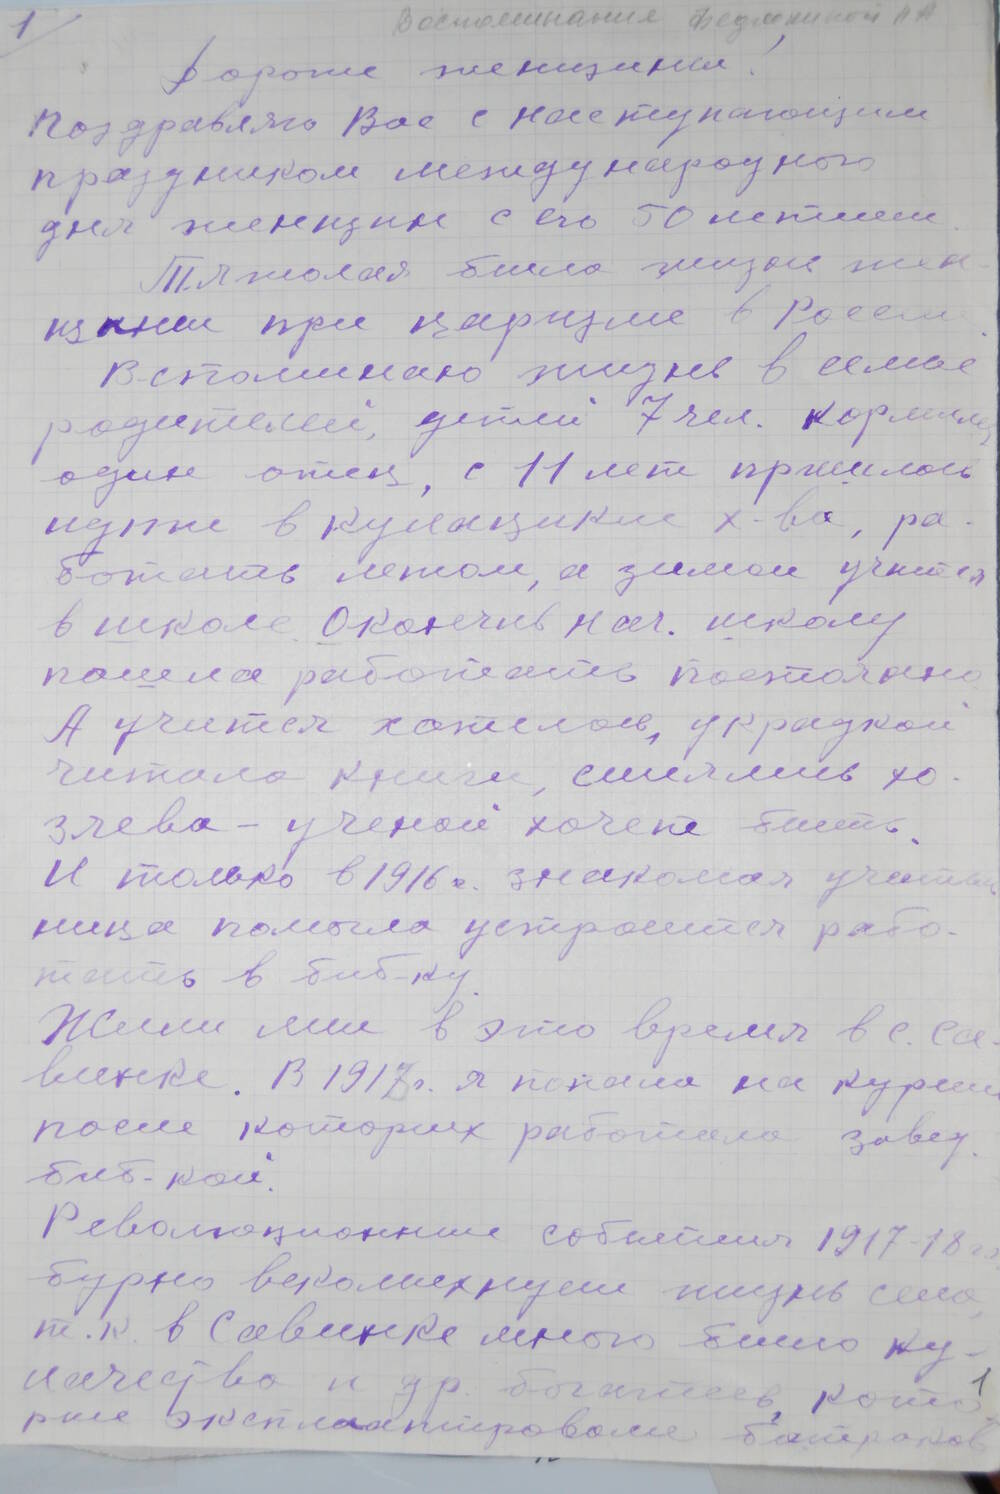 1
Воспоминания Бедлинской АА
Дорогие женщины!
Поздравляю Вас с наступающим
праздником международного
дня женщин с его 50 летием.
Тяжолая была жизнь жен-
щины при царизме в России
Вспоминаю жизнь в семье
родителей, детей 7 чел. кормилец
один отец, с 11 лет пришлось
идти в кулацкие х-ва, ра-
ботать летом, а зимой учится
в школе. Окончив нач. школу
пошла работать постояно
А учится хотелось, украдкой
читала книги, смеялись хо-
зяева - ученой хочет быть.
И только в 1916 г. знакомая учитель
ница помогла устроится рабо-
тать в биб-ку.
Жили мы в это время в с. Са-
винке. В 1917 г. я попала на курсы
после которых работала завед.
биб-кой.
Революционные события 1917-18 гг
бурно всколыхнули жизнь села,
т.к. в Савинке много было ку-
лачества и др. богатеев, кото
рые эксплоатировали батраков
1